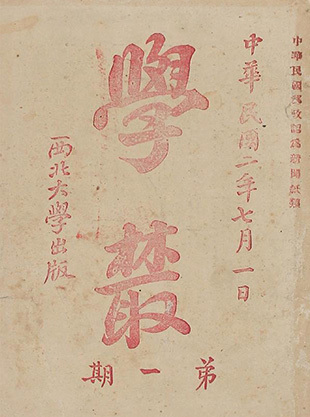 中華民國郵政認爲新聞紙類
中華民國二年七月一日
學叢
第一期
西北大學出版